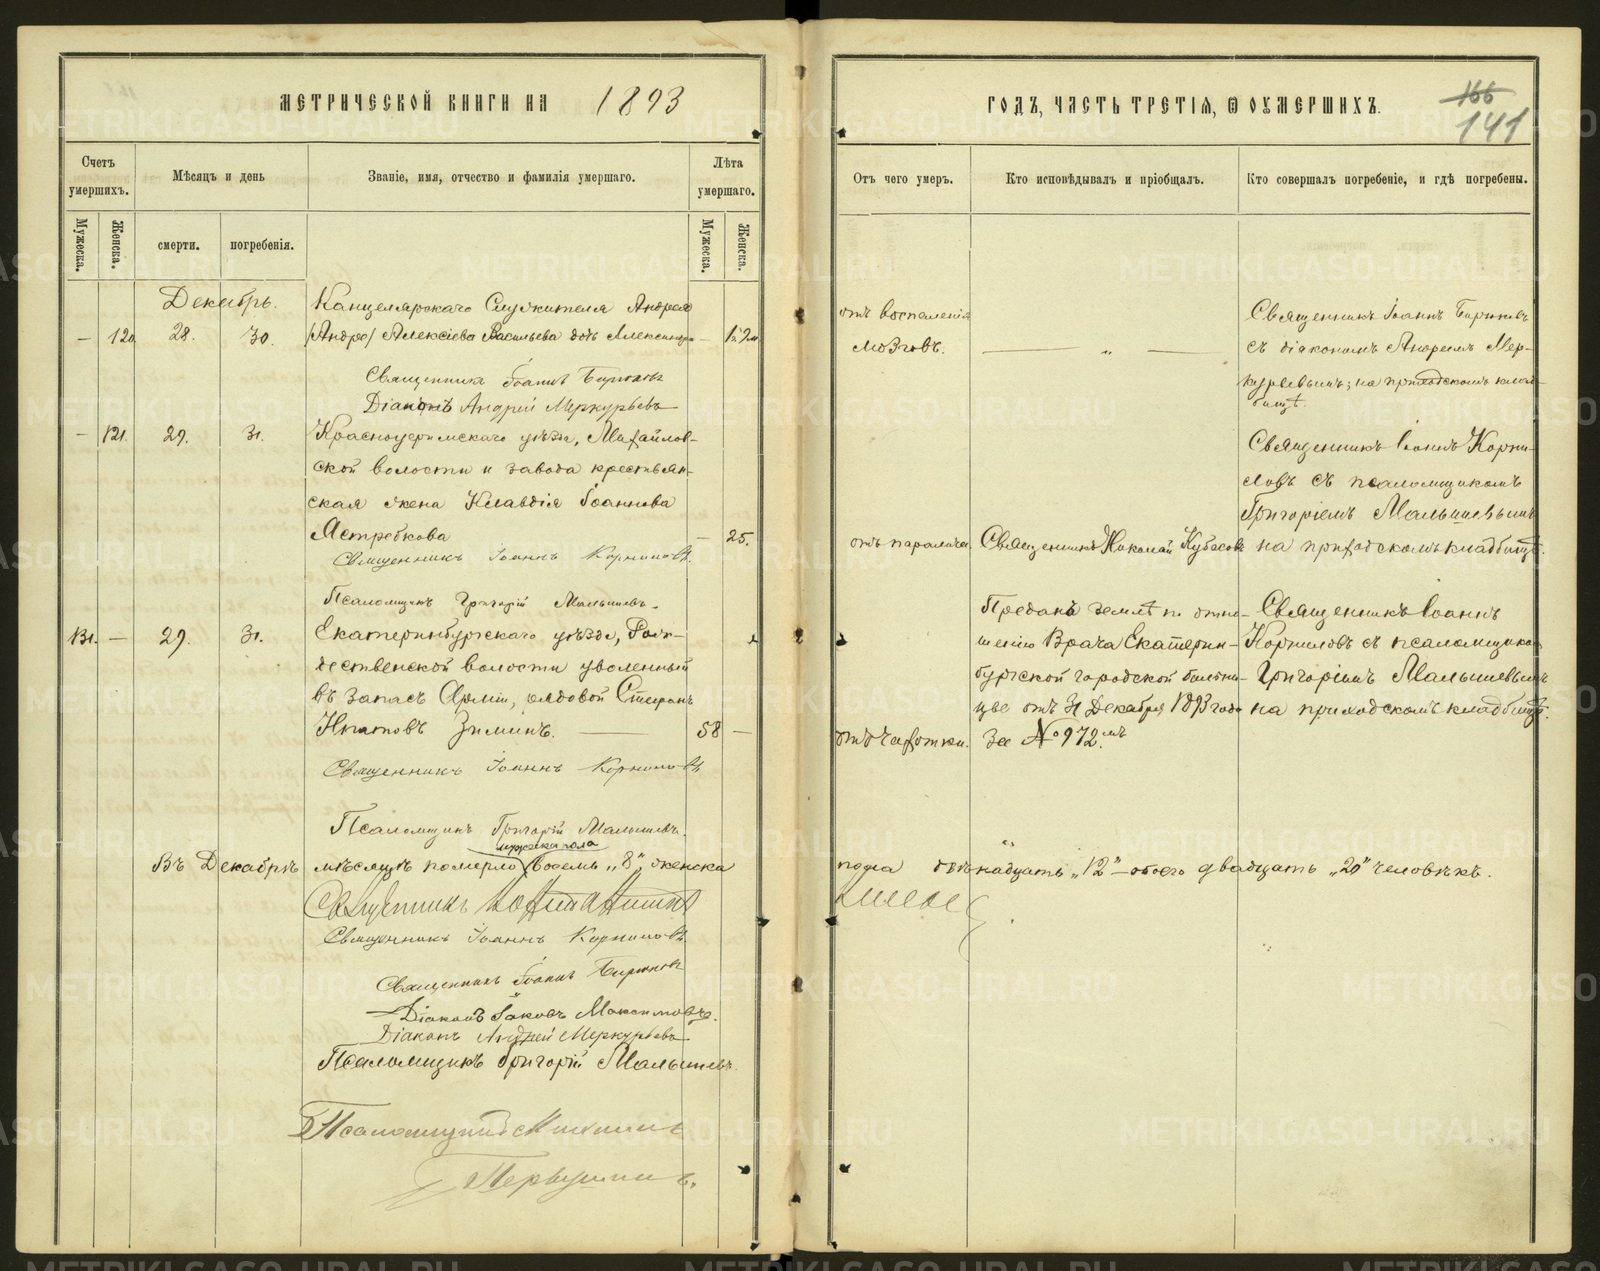 МЕТРИЧЕСКОЙ КНИГИ НА 1893
ГОДЪ, ЧАСТЬ ТРЕТІЯ, Ѿ ОУМЕРШИХЪ.
166
141
Счетъ умершихъ.
Мѣсяцъ и день
Званіе, имя, отчество и фамилія умершаго.
Лѣта умершаго.
Отъ чего умеръ.
Кто исповѣдывалъ и пріобщалъ.
Кто совершалъ погребеніе, и гдѣ погребены.
Мужеска.
Женска.
смерти.
погребенія.
Мужеска.
Женска.
Декабрь.
— 120. 28. 30.
Канцелярскаго Служителя Андрея
(Андрео) Алексіева Васильева дочь Александра —
отъ воспаленія
мозговъ.
— „ —
Священникъ Іоаннъ Бирюковъ
съ діакономъ Андреемъ Мер-
курьевымъ; на приходскомъ клад-
бищѣ.
Священникъ Іоаннъ Бирюковъ
Діаконъ Андрей Меркурьевъ
— 121. 29. 31.
Красноуфимскаго уѣзда, Михайлов-
ской волости и завода крестьян-
ская жена Клавдія Іоаннова
Ястребкова — 25.
отъ паралича.
Священникъ Николай
Священникъ Іоаннъ Корни-
ловъ съ псаломщикомъ
Григоріемъ Малышевымъ
на приходскомъ кладбищѣ.
Священникъ Іоаннъ Корниловъ.
Псаломщикъ Григорій Малышевъ.
131. — 29. 31.
Екатеринбургскаго уѣзда, Рож-
дественской волости уволенный
въ запасъ Арміи, рядовой Стефанъ
Ипатовъ Зиминъ. — 58 —
отъ чахотки.
Преданъ землѣ по отно-
шенію Врача Екатерин-
бургской городской больни-
цы отъ 31 Декабря 1893 года
за № 972.мъ
Священникъ Іоаннъ
Корниловъ съ псаломщикомъ
Григоріемъ Малышевымъ
на приходскомъ кладбищѣ.
Священникъ Іоаннъ Корниловъ
Псаломщикъ Григорій Малышевъ.
мужеска пола
Въ Декабрѣ мѣсяцѣ померло восемь „8“, женска
пола двѣнадцать „12“ — обоего двадцать „20“ человѣкъ.
Священникъ
Священникъ Іоаннъ Корниловъ.
Священникъ Іоаннъ Бирюковъ
Діаконъ Іаковъ Максимовъ.
Діаконъ Андрей Меркурьевъ
Псаломщикъ Григорій Малышевъ.
Псаломщикъ
Первушинъ.
METRIKI.GASO-URAL.RU